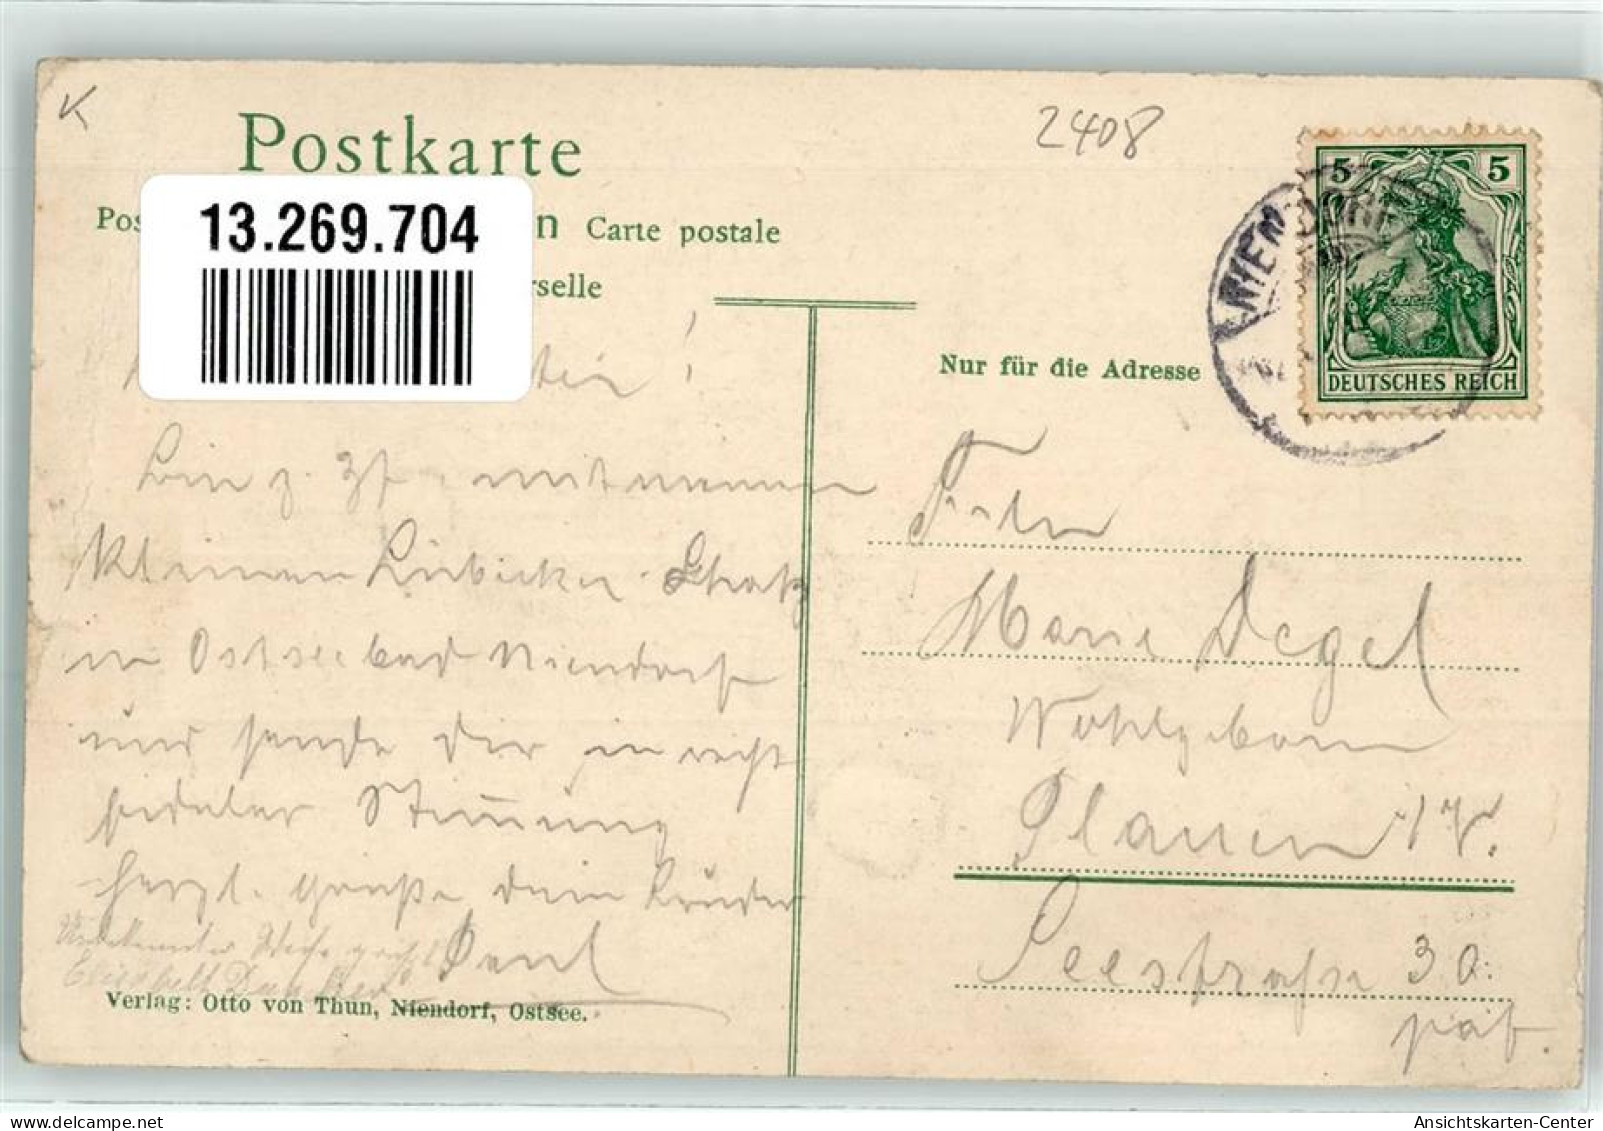 K
2408
Postkarte
13.269.704
Carte postale
rselle
Nur für die Adresse
5 5
DEUTSCHES REICH
NIENDORF
!
Bin z. Zt. mit meinem
kleinen Lübecker Schatz
in Ostseebad Niendorf
und sende Dir in recht
fideler Stimmung
herzl. Grüße dein Bruder
Paul
Unbekannter Weise
Elisabeth
Verlag: Otto von Thun, Niendorf, Ostsee.
Frln
Marie Degel
Wohlgeboren
Plauen i/V.
Seestraße 30.
part.
Ansichtskarten-Center